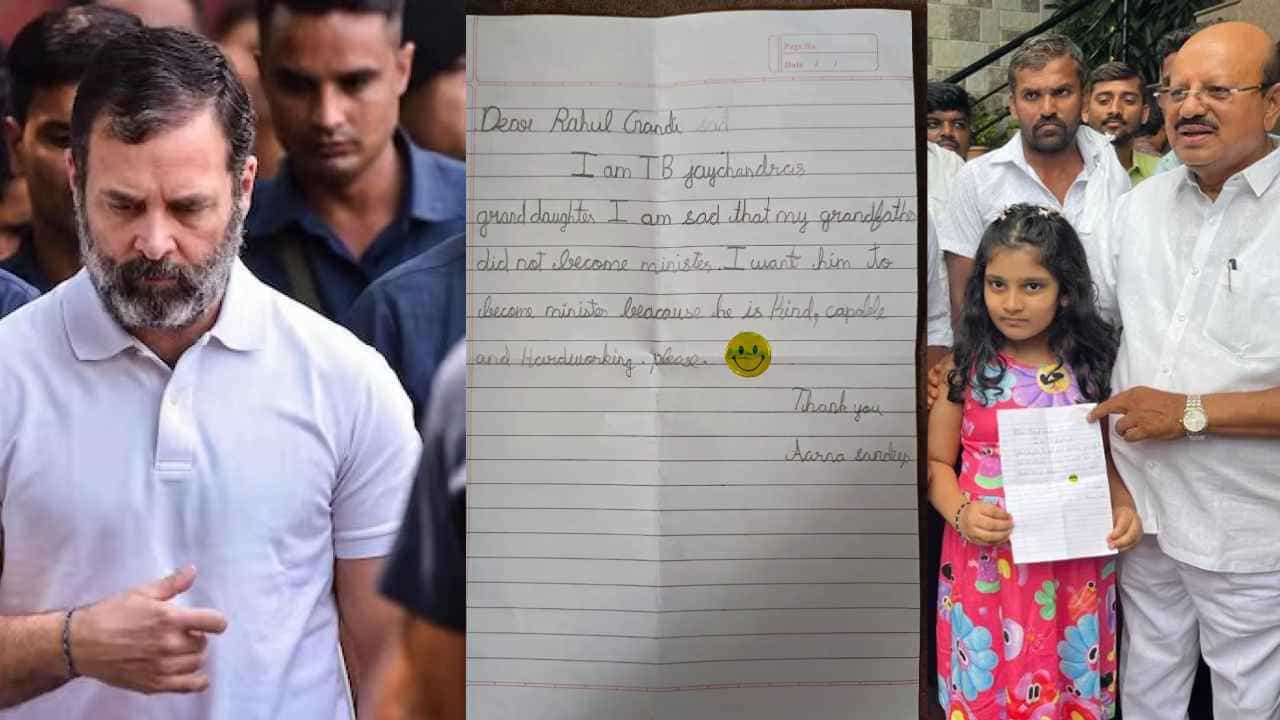 Page No.
Date / /
Dear Rahul Grandi sad
I am TB jaychandras
grand daughter I am sad that my grandfathe
did not become minister. I want him to
become minister beacause he is kind, capable
and Hardworking. please.
Thank you
Aarna sandeep